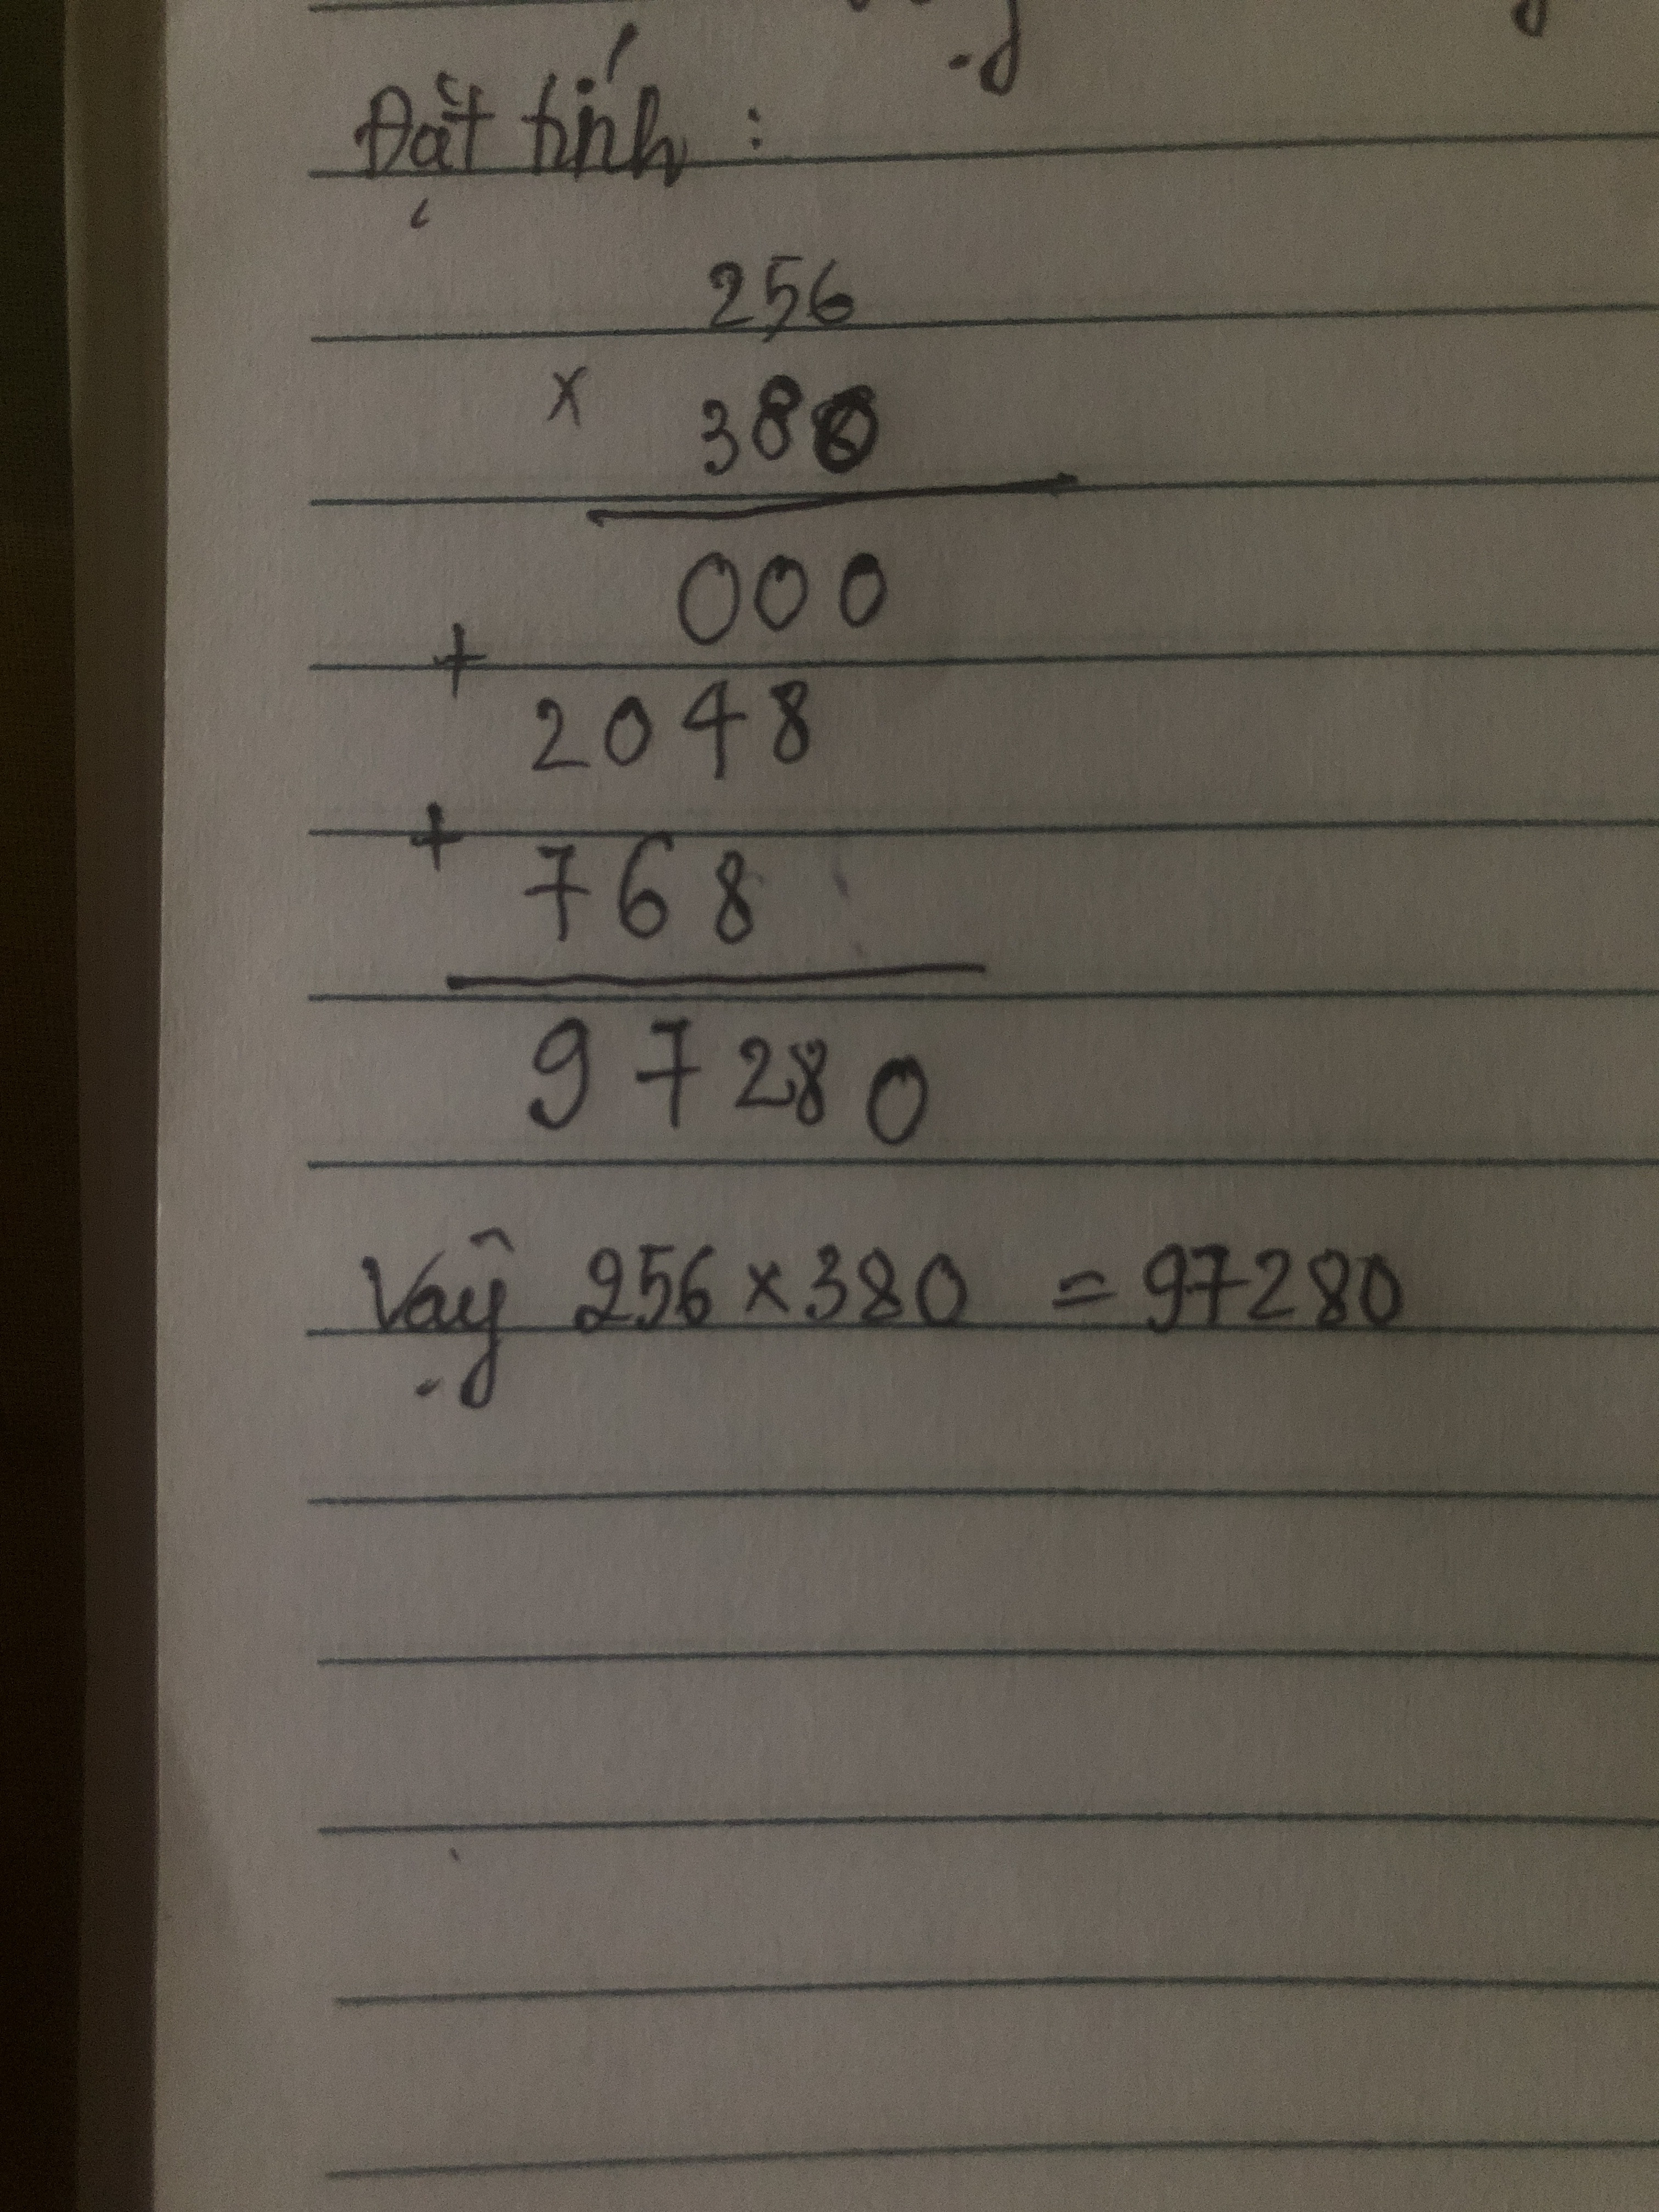 Đặt tính :
256
x 380
000
+
2048
+
768
97280
Vậy 256 x 380 = 97280